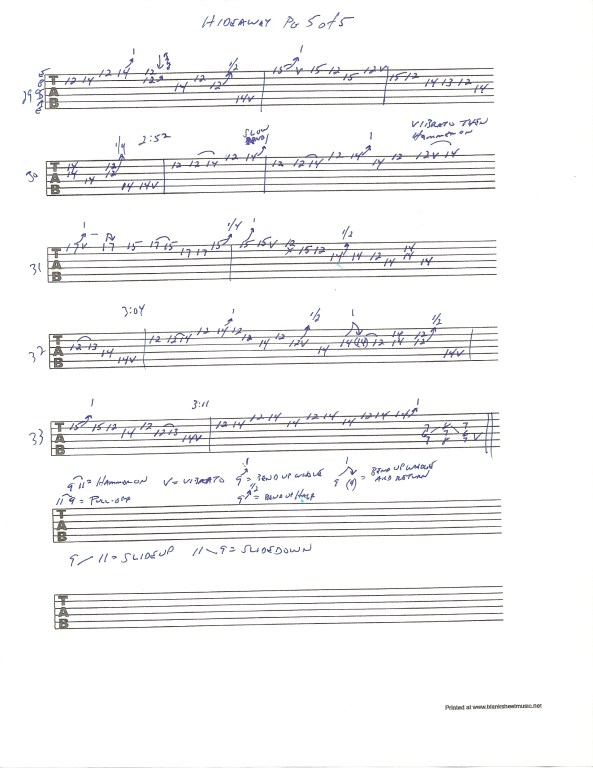 HIDEAWAY PG 5 of 5
1 1/2 1
15 12 15 12 15 12 V 15 12
12 14 12 14 12 14 12 12 14 13 12 14
29 TAB 14V
1/4 2:52 SLOW BEND 1 VIBRATO THEN
Hammer on
14 12 12 12 14 12 14 12 12 14 12 14 14 12 12 V 14
30 TAB 14 14 12 14 14V
1 1/4 1 1/2
17 V 17 15 17 15 17 17 15 15 15 V 12 15 12 14 14 12 14 14 14
31 TAB
3:04 1 1/2 1 1/2
12 13 14 14V 12 12 14 12 14 12 12 14 12 12V 14 14 (14) 12 14 12 14 12 14V
32 TAB
1 3:11 1
15 15 12 14 12 12 13 14V 12 14 12 14 14 12 14 14 12 14 14
33 TAB V
9 11 = Hammer on V = VIBRATO 9 = BEND UP WHOLE 9 (9) = BEND UP WHOLE AND RETURN
11 9 = Pull-off 9 1/2 = BEND UP HALF
TAB
9 / 11 = SLIDE UP 11 \ 9 = SLIDE DOWN
TAB
Printed at www.blanksheetmusic.net